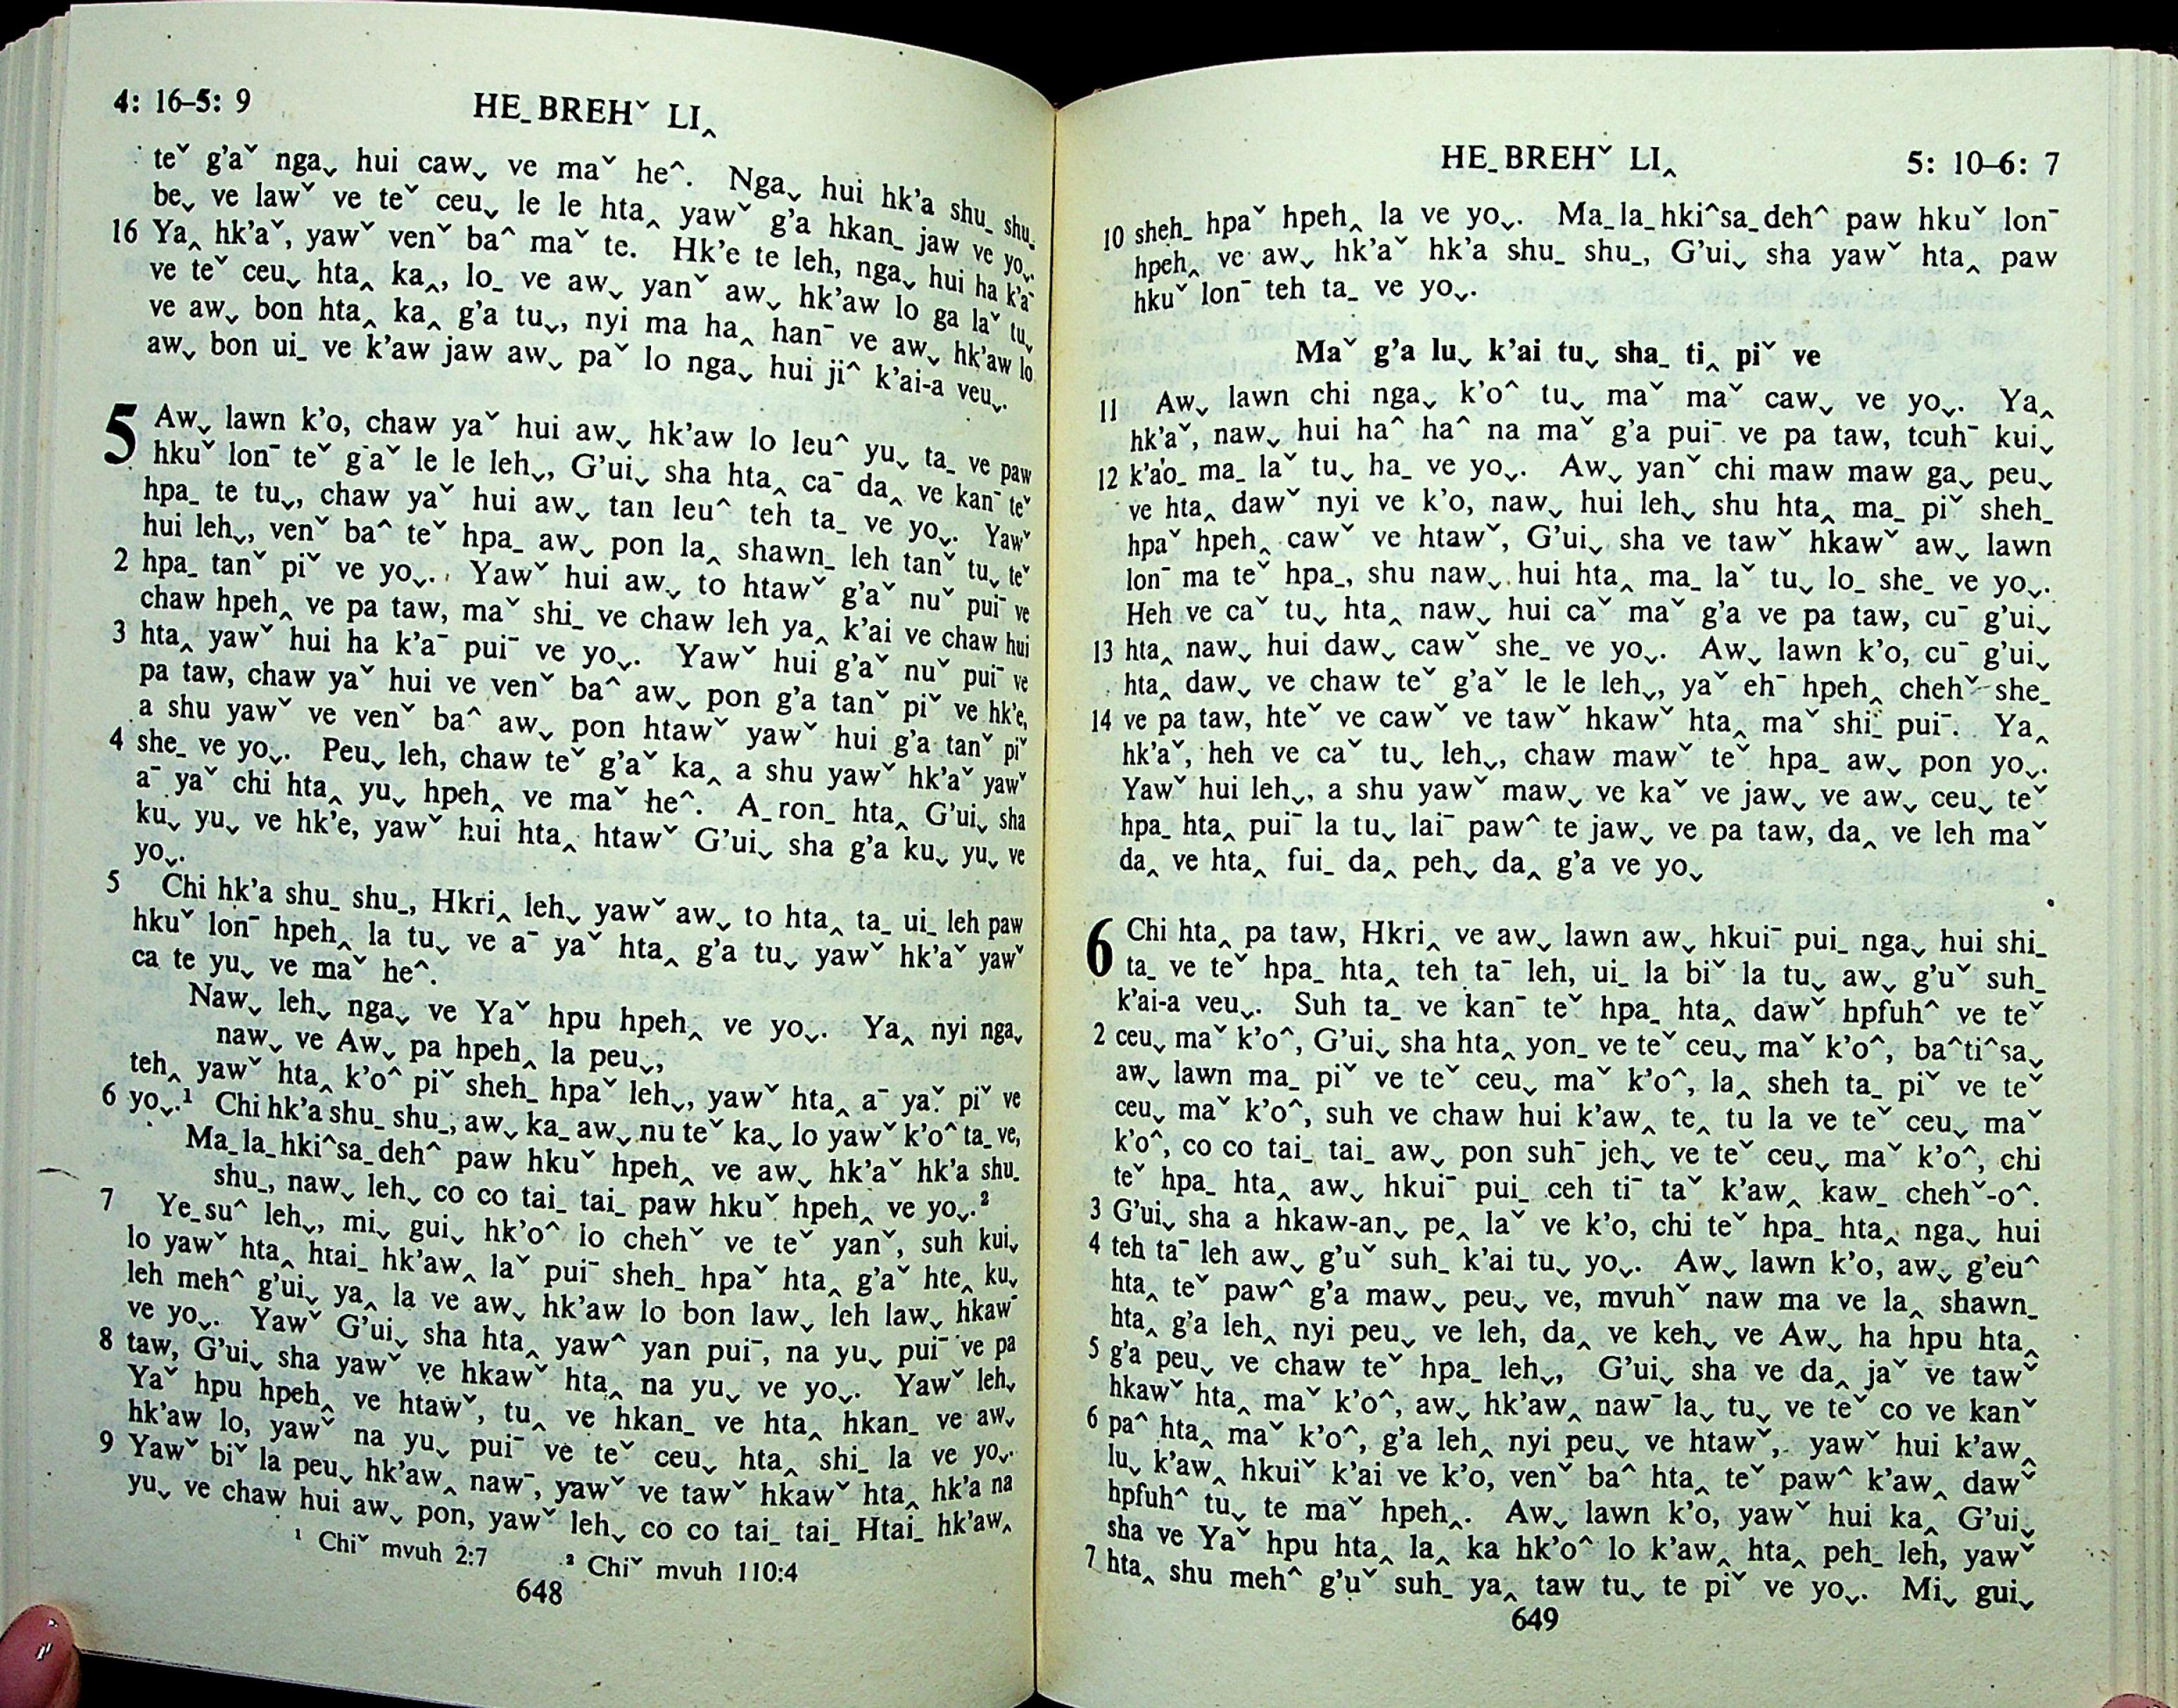 4: 16–5: 9
HE_BREHˇ LI‸
teˇ g'aˇ nga˯ hui caw˯ ve maˇ he^. Nga˯ hui hk'a shu_ shu_
be˯ ve lawˇ ve teˇ ceu˯ le le hta‸ yawˇ g'a hkan_ jaw ve yo˯.
16 Ya‸ hk'aˇ, yawˇ venˇ ba^ maˇ te. Hk'e te leh, nga˯ hui ha k'a¯
ve teˇ ceu˯ hta‸ ka‸, lo_ ve aw˯ yanˇ aw˯ hk'aw lo ga laˇ tu˯
ve aw˯ bon hta‸ ka‸ g'a tu˯, nyi ma ha‸ han¯ ve aw˯ hk'aw lo
aw˯ bon ui_ ve k'aw jaw aw˯ paˇ lo nga˯ hui ji^ k'ai-a veu˯.
5 Aw˯ lawn k'o, chaw yaˇ hui aw˯ hk'aw lo leu^ yu˯ ta_ ve paw
hkuˇ lon¯ teˇ g'aˇ le le leh˯, G'ui˯ sha hta‸ ca¯ da‸ ve kan¯ teˇ
hpa_ te tu˯, chaw yaˇ hui aw˯ tan leu^ teh ta_ ve yo˯. Yawˇ
hui leh˯, venˇ ba^ teˇ hpa_ aw˯ pon la‸ shawn_ leh tanˇ tu˯ teˇ
2 hpa_ tanˇ piˇ ve yo˯. Yawˇ hui aw˯ to htawˇ g'aˇ nuˇ pui¯ ve
chaw hpeh‸ ve pa taw, maˇ shi_ ve chaw leh ya‸ k'ai ve chaw hui
3 hta‸ yawˇ hui ha k'a¯ pui¯ ve yo˯. Yawˇ hui g'aˇ nuˇ pui¯ ve
pa taw, chaw yaˇ hui ve venˇ ba^ aw˯ pon g'a tanˇ piˇ ve hk'e,
a shu yawˇ ve venˇ ba^ aw˯ pon htawˇ yawˇ hui g'a tanˇ piˇ
4 she_ ve yo˯. Peu˯ leh, chaw teˇ g'aˇ ka‸ a shu yawˇ hk'aˇ yawˇ
a¯ yaˇ chi hta‸ yu˯ hpeh‸ ve maˇ he^. A_ron_ hta‸ G'ui˯ sha
ku˯ yu˯ ve hk'e, yawˇ hui hta‸ htawˇ G'ui˯ sha g'a ku˯ yu˯ ve
yo˯.
5 Chi hk'a shu_ shu_, Hkri‸ leh˯ yawˇ aw˯ to hta‸ ta_ ui_ leh paw
hkuˇ lon¯ hpeh‸ la tu˯ ve a¯ yaˇ hta‸ g'a tu˯ yawˇ hk'aˇ yawˇ
ca te yu˯ ve maˇ he^.
Naw˯ leh˯ nga˯ ve Yaˇ hpu hpeh‸ ve yo˯. Ya‸ nyi nga˯
naw˯ ve Aw˯ pa hpeh‸ la peu˯,
teh‸ yawˇ hta‸ k'o^ piˇ sheh_ hpaˇ leh˯, yawˇ hta‸ a¯ yaˇ piˇ ve
6 yo˯.¹ Chi hk'a shu_ shu_, aw˯ ka_ aw˯ nu teˇ ka˯ lo yawˇ k'o^ ta_ ve,
Ma_la_hki^sa_deh^ paw hkuˇ hpeh‸ ve aw˯ hk'aˇ hk'a shu_
shu_, naw˯ leh˯ co co tai_ tai_ paw hkuˇ hpeh‸ ve yo˯.²
7 Ye_su^ leh˯, mi˯ gui˯ hk'o^ lo chehˇ ve teˇ yanˇ, suh kui˯
lo yawˇ hta‸ htai_ hk'aw‸ laˇ pui¯ sheh_ hpaˇ hta‸ g'aˇ hte‸ ku˯
leh meh^ g'ui˯ ya‸ la ve aw˯ hk'aw lo bon law˯ leh law˯ hkaw¯
ve yo˯. Yawˇ G'ui˯ sha hta‸ yaw^ yan pui¯, na yu˯ pui¯ ve pa
8 taw, G'ui˯ sha yawˇ ve hkawˇ hta‸ na yu˯ ve yo˯. Yawˇ leh˯
Yaˇ hpu hpeh‸ ve htawˇ, tu‸ ve hkan_ ve hta‸ hkan_ ve aw˯
hk'aw lo, yawˇ na yu˯ pui¯ ve teˇ ceu˯ hta‸ shi_ la ve yo˯.
9 Yawˇ biˇ la peu˯ hk'aw‸ naw¯, yawˇ ve tawˇ hkawˇ hta‸ hk'a na
yu˯ ve chaw hui aw˯ pon, yawˇ leh˯ co co tai_ tai_ Htai_ hk'aw‸
¹ Chiˇ mvuh 2:7 ² Chiˇ mvuh 110:4
648
HE_BREHˇ LI‸
5: 10–6: 7
10 sheh_ hpaˇ hpeh‸ la ve yo˯. Ma_la_hki^sa_deh^ paw hkuˇ lon¯
hpeh‸ ve aw˯ hk'aˇ hk'a shu_ shu_, G'ui˯ sha yawˇ hta‸ paw
hkuˇ lon¯ teh ta_ ve yo˯.
Maˇ g'a lu˯ k'ai tu˯ sha_ ti‸ piˇ ve
11 Aw˯ lawn chi nga˯ k'o^ tu˯ maˇ maˇ caw˯ ve yo˯. Ya‸
hk'aˇ, naw˯ hui ha^ ha^ na maˇ g'a pui¯ ve pa taw, tcuh¯ kui˯
12 k'ao_ ma_ laˇ tu˯ ha_ ve yo˯. Aw˯ yanˇ chi maw maw ga˯ peu˯
ve hta‸ dawˇ nyi ve k'o, naw˯ hui leh˯ shu hta‸ ma_ piˇ sheh_
hpaˇ hpeh‸ cawˇ ve htawˇ, G'ui˯ sha ve tawˇ hkawˇ aw˯ lawn
lon¯ ma teˇ hpa_, shu naw˯ hui hta‸ ma_ laˇ tu˯ lo_ she_ ve yo˯.
Heh ve caˇ tu˯ hta‸ naw˯ hui caˇ maˇ g'a ve pa taw, cu¯ g'ui˯
13 hta‸ naw˯ hui daw˯ cawˇ she_ ve yo˯. Aw˯ lawn k'o, cu¯ g'ui˯
hta‸ daw˯ ve chaw teˇ g'aˇ le le leh˯, yaˇ eh¯ hpeh‸ chehˇ she_
14 ve pa taw, hteˇ ve cawˇ ve tawˇ hkawˇ hta‸ maˇ shi_ pui¯. Ya‸
hk'aˇ, heh ve caˇ tu˯ leh˯, chaw mawˇ teˇ hpa_ aw˯ pon yo˯.
Yawˇ hui leh˯, a shu yawˇ maw˯ ve kaˇ ve jaw˯ ve aw˯ ceu˯ teˇ
hpa_ hta‸ pui¯ la tu˯ lai¯ paw^ te jaw˯ ve pa taw, da‸ ve leh maˇ
da‸ ve hta‸ fui_ da‸ peh˯ da‸ g'a ve yo˯
6 Chi hta‸ pa taw, Hkri‸ ve aw˯ lawn aw˯ hkui¯ pui_ nga˯ hui shi_
ta_ ve teˇ hpa_ hta‸ teh ta¯ leh, ui_ la biˇ la tu˯ aw˯ g'uˇ suh_
k'ai-a veu˯. Suh ta_ ve kan¯ teˇ hpa_ hta‸ dawˇ hpfuh^ ve teˇ
2 ceu˯ maˇ k'o^, G'ui˯ sha hta‸ yon_ ve teˇ ceu˯ maˇ k'o^, ba^ti^sa˯
aw˯ lawn ma_ piˇ ve teˇ ceu˯ maˇ k'o^, la‸ sheh ta_ piˇ ve teˇ
ceu˯ maˇ k'o^, suh ve chaw hui k'aw‸ te‸ tu la ve teˇ ceu˯ maˇ
k'o^, co co tai_ tai_ aw˯ pon suh¯ jeh˯ ve teˇ ceu˯ maˇ k'o^, chi
teˇ hpa_ hta‸ aw˯ hkui¯ pui_ ceh ti¯ taˇ k'aw‸ kaw_ chehˇ-o^.
3 G'ui˯ sha a hkaw-an˯ pe‸ laˇ ve k'o, chi teˇ hpa_ hta‸ nga˯ hui
4 teh ta¯ leh aw˯ g'uˇ suh_ k'ai tu˯ yo˯. Aw˯ lawn k'o, aw˯ g'eu^
hta‸ teˇ paw^ g'a maw˯ peu˯ ve, mvuhˇ naw ma ve la‸ shawn_
hta‸ g'a leh‸ nyi peu˯ ve leh, da‸ ve keh˯ ve Aw˯ ha hpu hta‸
5 g'a peu˯ ve chaw teˇ hpa_ leh˯, G'ui˯ sha ve da‸ jaˇ ve tawˇ
hkawˇ hta‸ maˇ k'o^, aw˯ hk'aw‸ naw¯ la˯ tu˯ ve teˇ co ve kanˇ
6 pa^ hta‸ maˇ k'o^, g'a leh‸ nyi peu˯ ve htawˇ, yawˇ hui k'aw‸
lu˯ k'aw‸ hkuiˇ k'ai ve k'o, venˇ ba^ hta‸ teˇ paw^ k'aw‸ dawˇ
hpfuh^ tu˯ te maˇ hpeh‸. Aw˯ lawn k'o, yawˇ hui ka‸ G'ui˯
sha ve Yaˇ hpu hta‸ la‸ ka hk'o^ lo k'aw‸ hta‸ peh_ leh, yawˇ
7 hta‸ shu meh^ g'uˇ suh_ ya‸ taw tu˯ te piˇ ve yo˯. Mi˯ gui˯
649